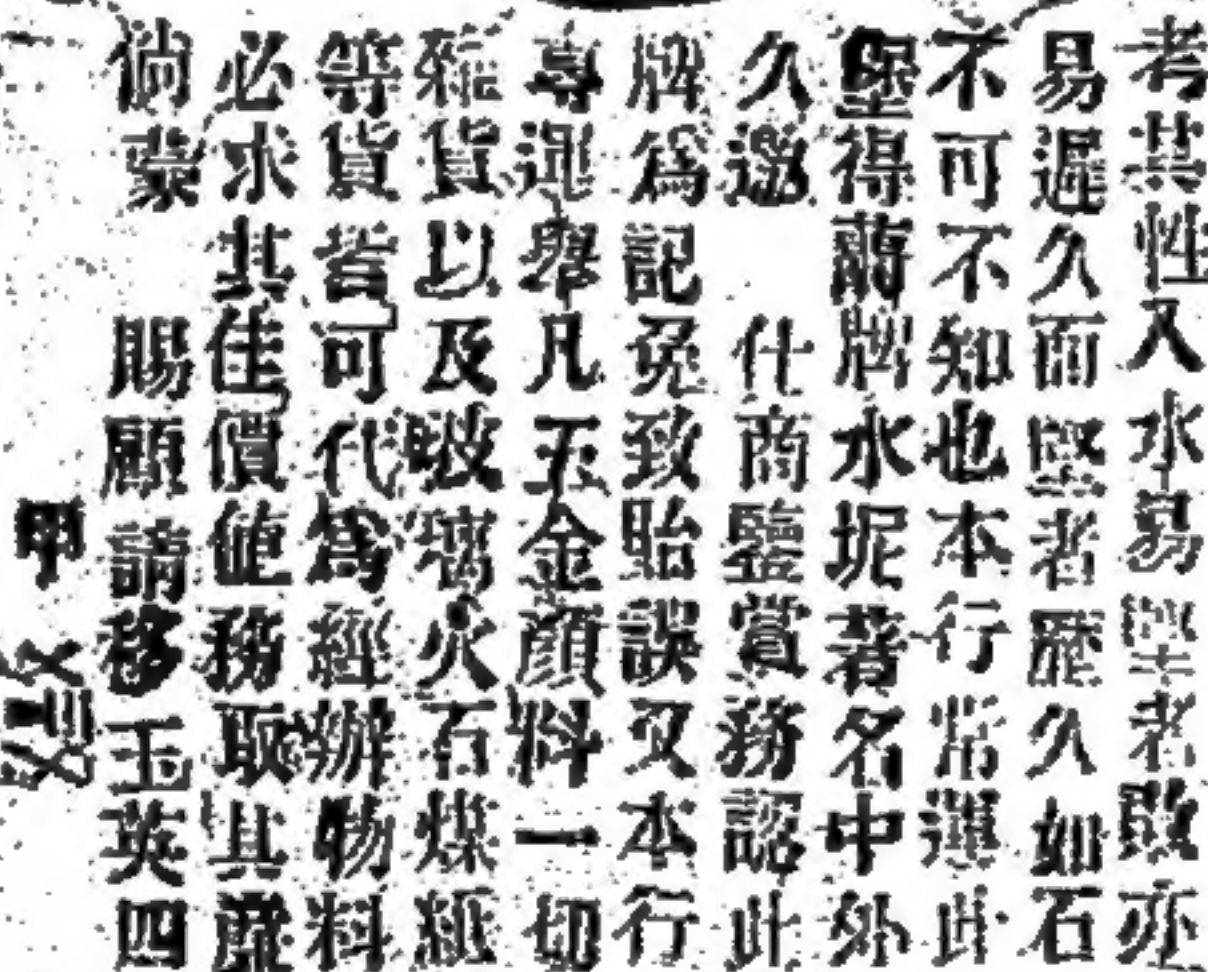 考其性入水易堅者敗亦
易遲久而堅者歷久如石
不可不知也本行常運此
堡得蘭牌水坭著名中外
久邀 仕商鑒賞務認此
牌為記免致貽誤又本行
專運舉凡五金顏料一切
雜貨以及玻璃火石煤紙
等貨皆可代為經辦物料
必求其佳價値務取其廉
倘蒙 賜顧請移玉英四
甲